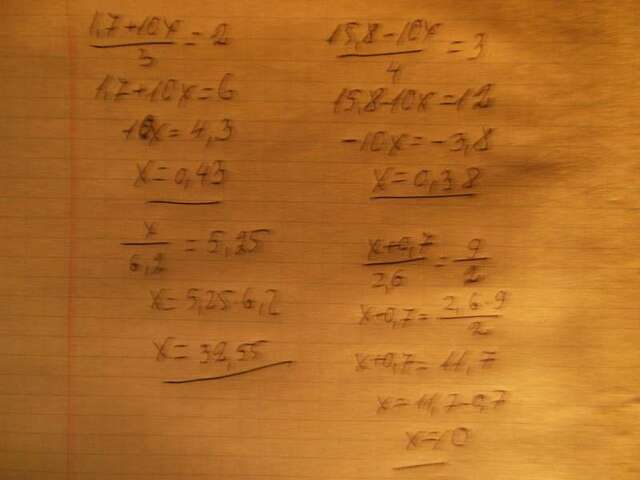 (1,7+10x)/3 = 2
1,7+10x=6
10x=4,3
x=0,43
(15,8-10x)/4 = 3
15,8-10x=12
-10x=-3,8
x=0,38
x/6,2 = 5,25
x=5,25·6,2
x=32,55
(x+0,7)/2,6 = 9/2
x+0,7=(2,6·9)/2
x+0,7=11,7
x=11,7-0,7